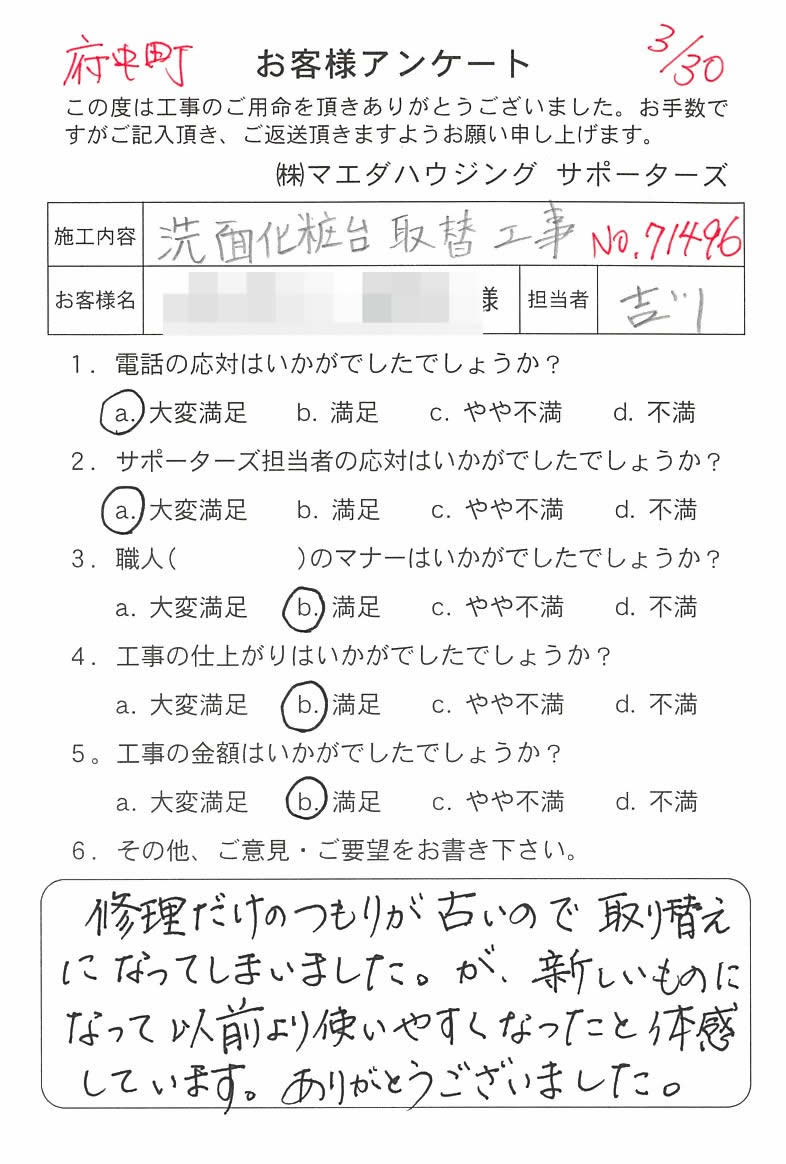 府中町 お客様アンケート 3/30
この度は工事のご用命を頂きありがとうございました。お手数で
すがご記入頂き、ご返送頂きますようお願い申し上げます。
㈱マエダハウジング サポーターズ
施工内容 洗面化粧台取替工事 No.71496
お客様名 様 担当者 吉川
1. 電話の応対はいかがでしたでしょうか?
a. 大変満足 b. 満足 c. やや不満 d. 不満
2. サポーターズ担当者の応対はいかがでしたでしょうか?
a. 大変満足 b. 満足 c. やや不満 d. 不満
3. 職人( )のマナーはいかがでしたでしょうか?
a. 大変満足 b. 満足 c. やや不満 d. 不満
4. 工事の仕上がりはいかがでしたでしょうか?
a. 大変満足 b. 満足 c. やや不満 d. 不満
5。工事の金額はいかがでしたでしょうか?
a. 大変満足 b. 満足 c. やや不満 d. 不満
6. その他、ご意見・ご要望をお書き下さい。
修理だけのつもりが古いので取り替え
になってしまいました。が、新しいものに
なって以前より使いやすくなったと体感
しています。ありがとうございました。